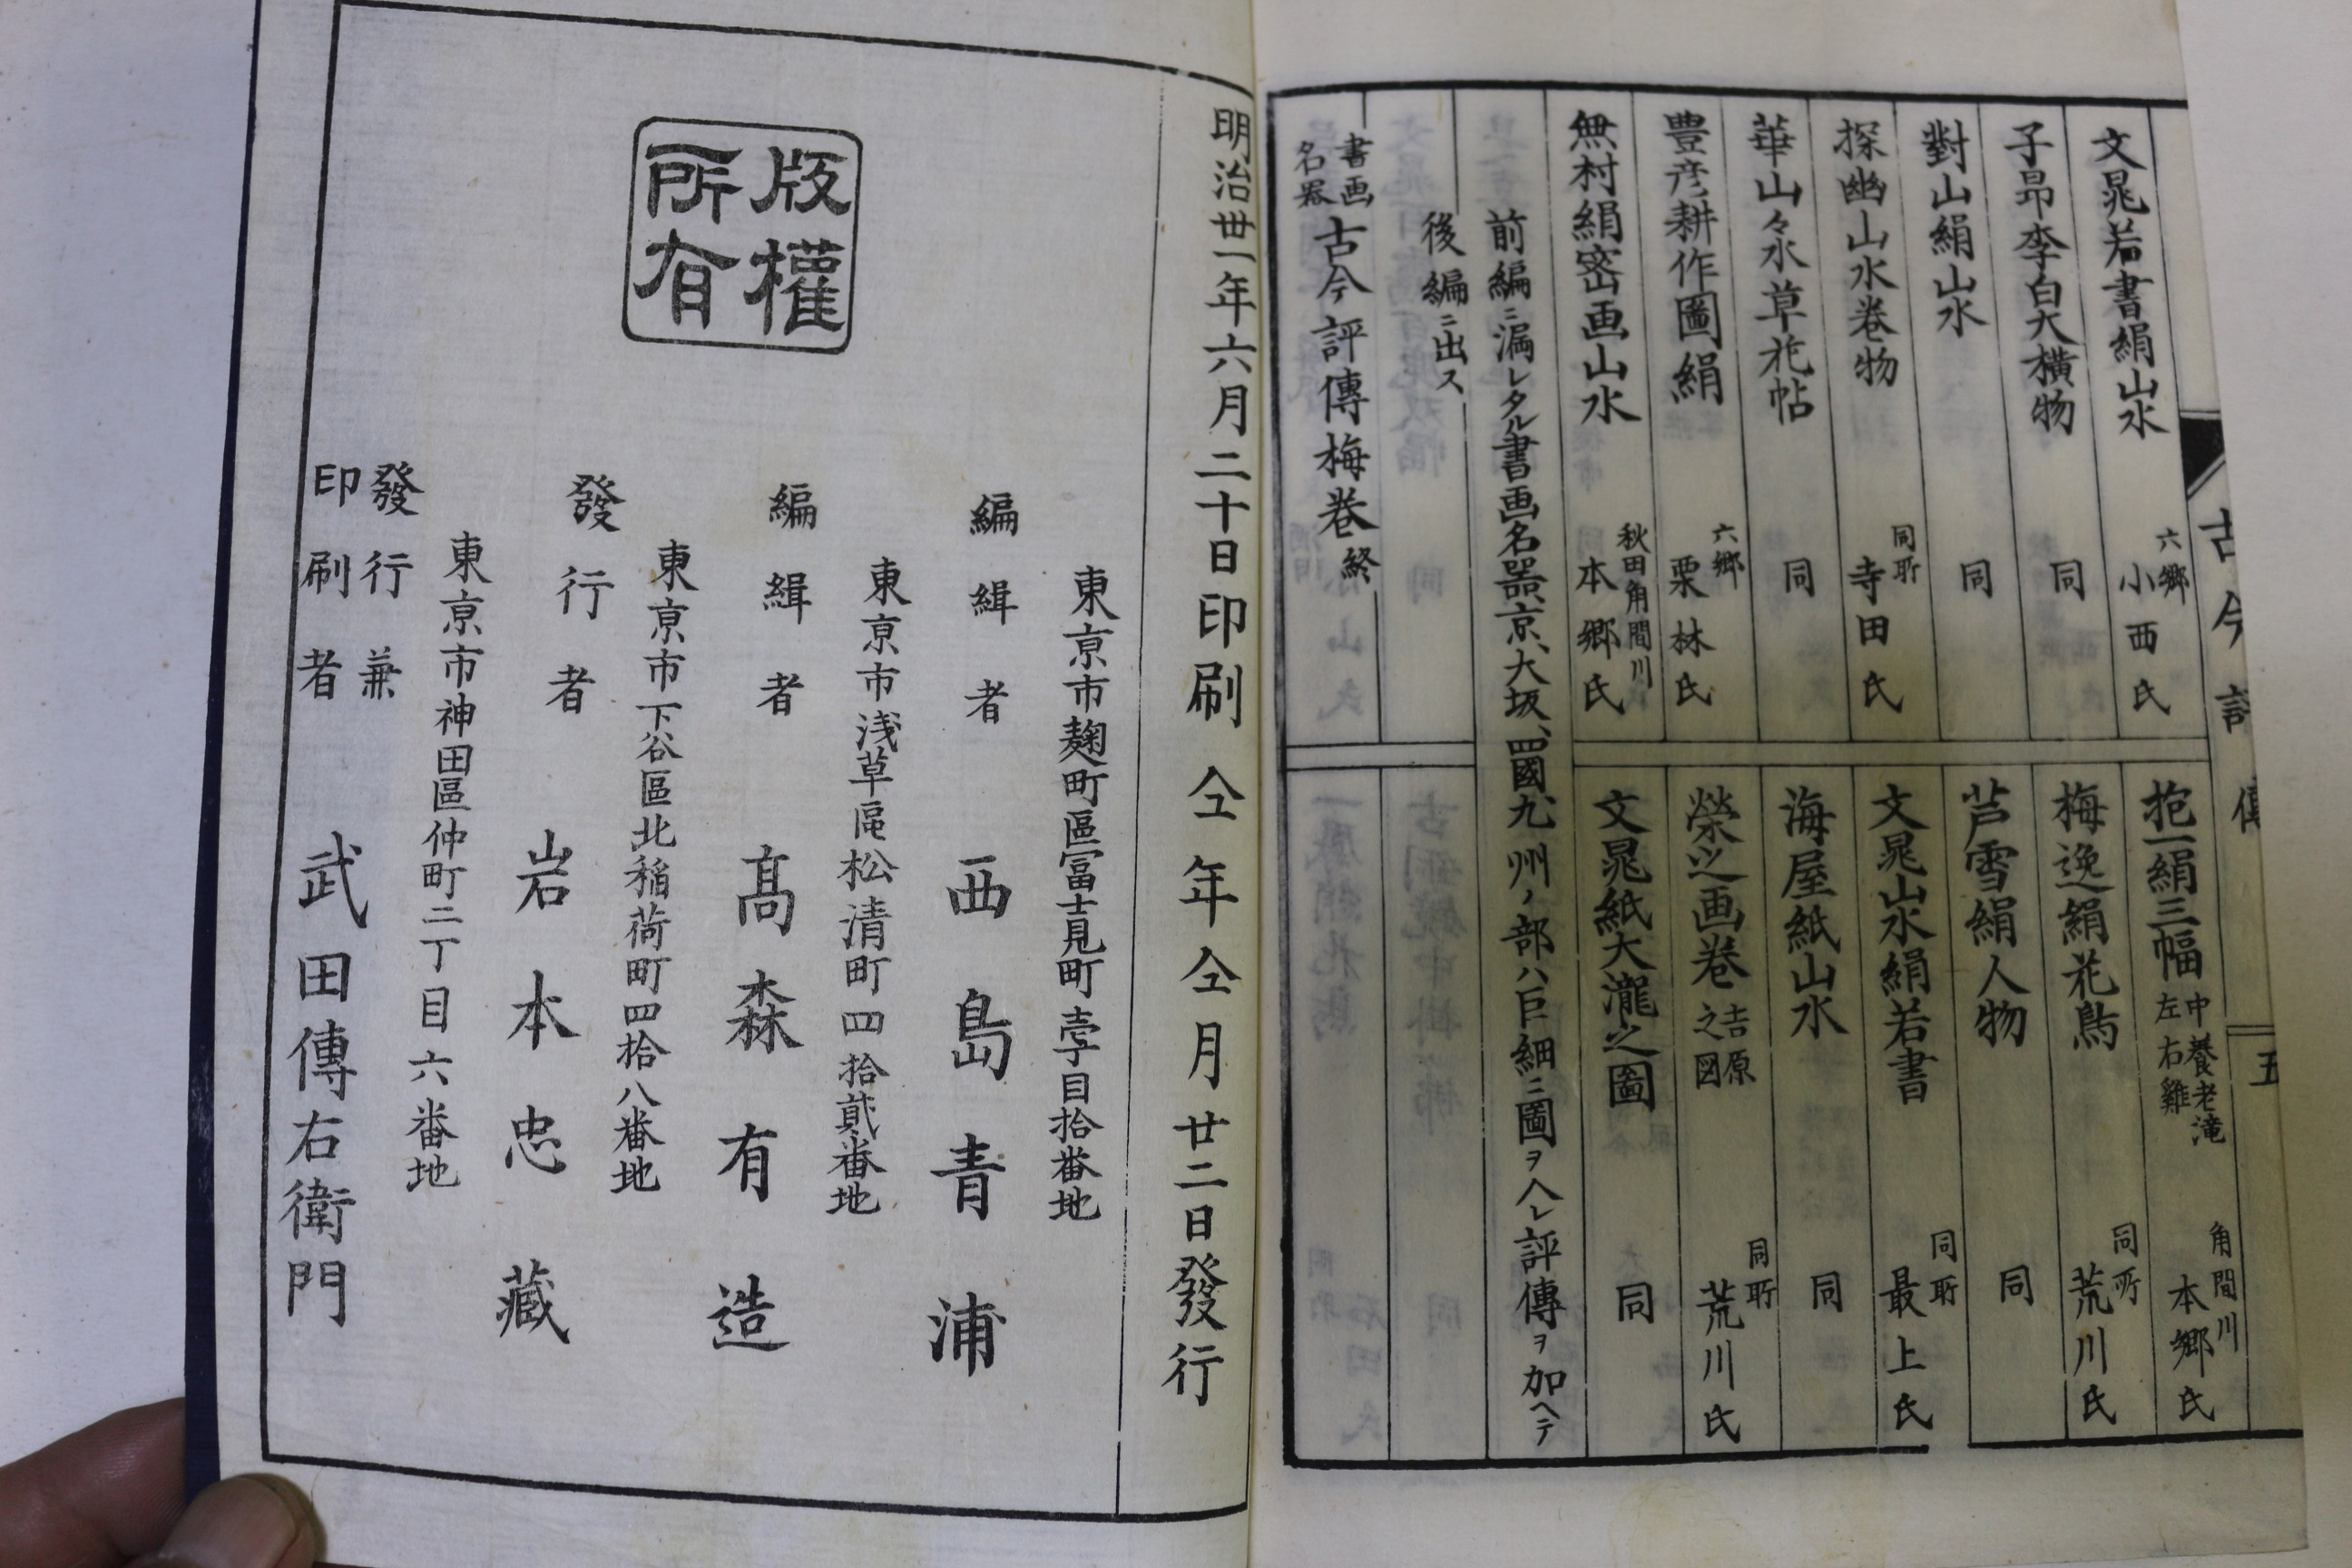 文晁若書絹山水 六郷 小西氏
子昂李白大横物 同
對山絹山水 同
探幽山水巻物 同所 寺田氏
華山々水草花帖 同
豊彦耕作圖絹 六郷 栗林氏
無村絹密画山水 秋田角間川 本郷氏
抱一絹三幅 中養老滝 左右雞 角間川 本郷氏
梅逸絹花鳥 同所 荒川氏
芦雪絹人物 同
文晁山水絹若書 同所 最上氏
海屋紙山水 同
榮之画巻 吉原之図 同所 荒川氏
文晁紙大瀧之圖 同
前編ニ漏レタル書画名器京、大坂、四國、九州ノ部ハ巨細ニ圖ヲ入レ評傳ヲ加ヘテ
後編ニ出ス
書画名器 古今評傳梅巻 終
古今評傳
五
明治丗一年六月二十日印刷 仝年仝月廿二日發行
版權所有
東京市麹町區冨士見町壱丁目拾番地
編緝者 西島青浦
東京市浅草區松清町四拾貳番地
編緝者 髙森有造
東京市下谷區北稲荷町四拾八番地
發行者 岩本忠藏
東京市神田區仲町二丁目六番地
發行兼印刷者 武田傳右衛門